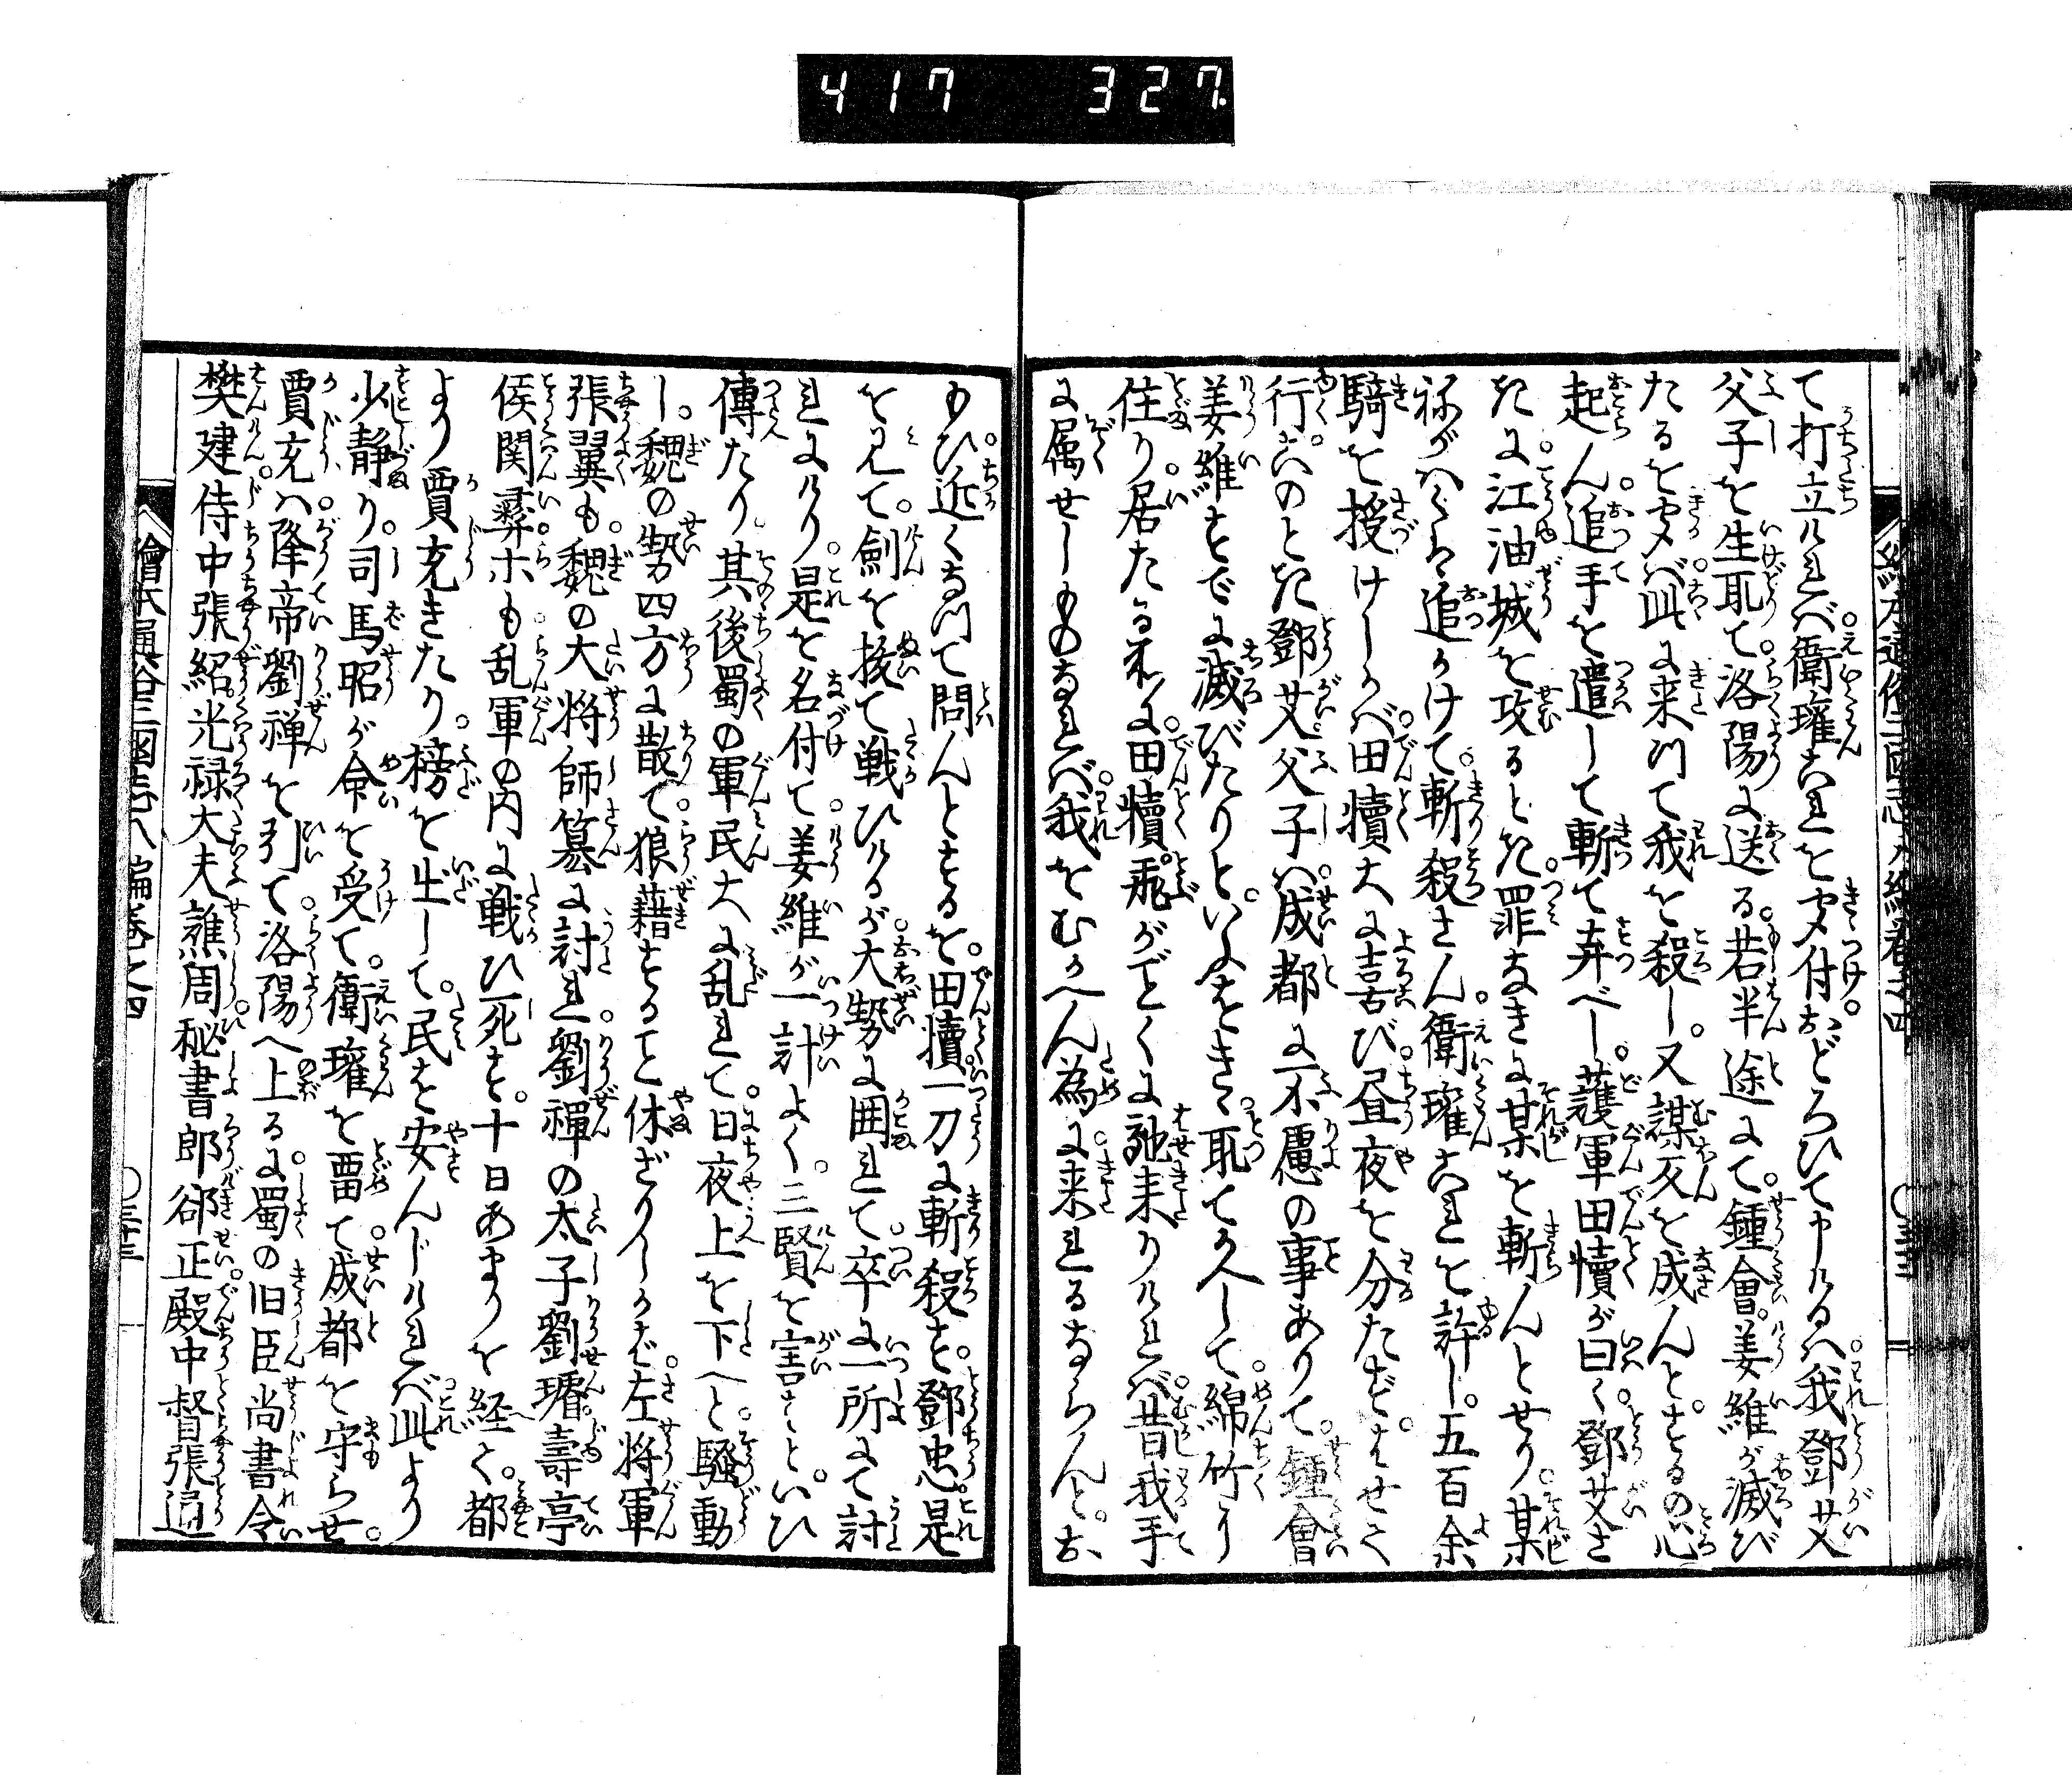 417 327
て打立けれバ衛瓘これを聞付おどろひて申けるハ我鄧艾
父子を生取て洛陽に送る若半途にて鍾會姜維が滅び
たるを聞バ此に来つて我を殺し又謀反を成んとするの心
起ん追手を遣して斬て弃べし護軍田犢が曰く鄧艾さ
きに江油城を攻るとき罪なきに某を斬んとせり某
ねがハくハ追かけて斬殺さん衛瓘これを許し五百余
騎を授けしかバ田犢大に喜び昼夜を分たずはせく
行このとき鄧艾父子ハ成都に不慮の事ありて鍾會
姜維すでに滅びたりといふをきゝ取て久して綿竹に
住り居たる永に田犢飛がごとくに馳来りけれバ昔我手
に属せしものなれバ我をむかへん為に来れるならんとお
もひ近くなつて問んとするを田犢一刀に斬殺す鄧忠是
を見て剣を抜て戦ひけるが大勢に囲れて卒に一所にて討
れにけり是を名付て姜維が一計よく三賢を害すといひ
傳たり其後蜀の軍民大に乱れて日夜上を下へと騒動
し魏の勢四方に散て狼藉すること休ざりしかバ左将軍
張翼も魏の大将師纂に討れ劉禪の太子劉璿壽亭
侯関彛ホも乱軍の内に戦ひ死す十日あまりを経て都
より賈充きたり榜を出して民を安んじけれバ此より
少静り司馬昭が命を受て衛瓘を畱て成都を守らせ
賈充ハ降帝劉禅を引て洛陽へ上るに蜀の旧臣尚書令
樊建侍中張紹光禄大夫譙周秘書郎郤正殿中督張通
繪本通俗三國志八編巻之四